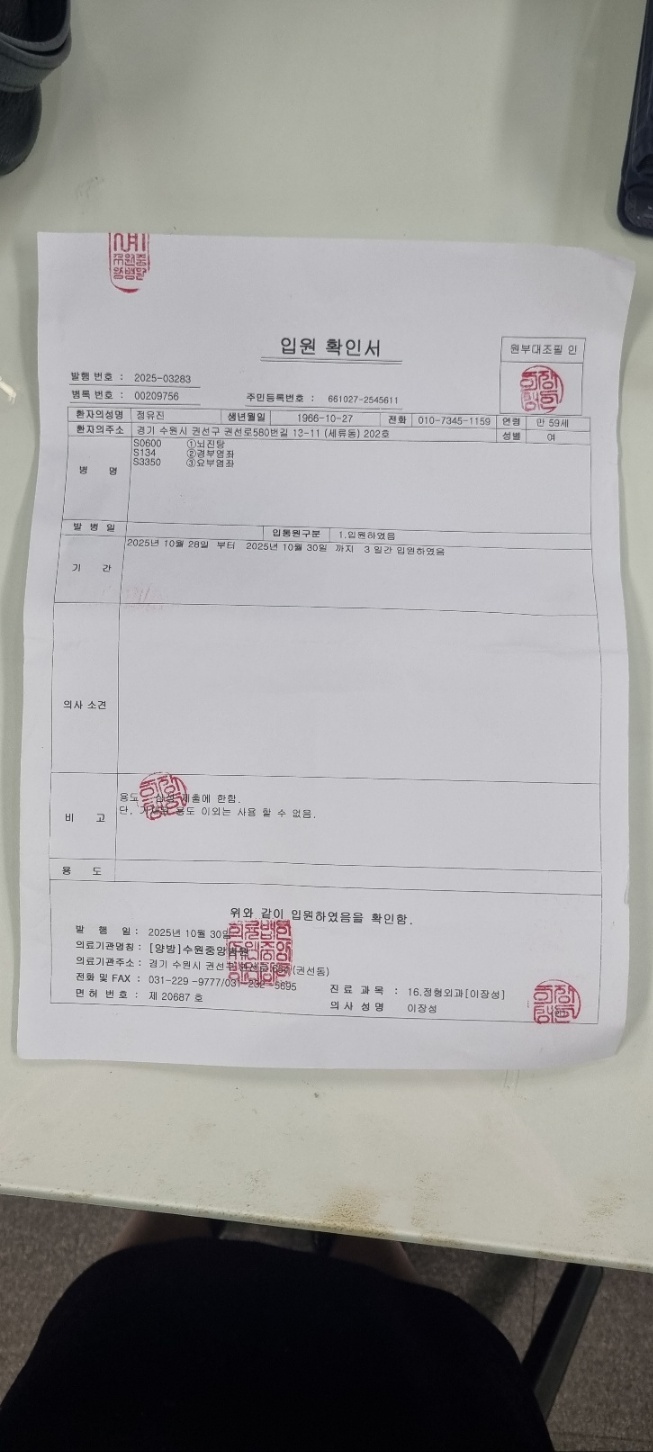 입원 확인서
원부대조필 인
발행 번호 : 2025-03283
병록 번호 : 00209756
주민등록번호 : 661027-2545611
환자의성명 정유진 생년월일 1966-10-27 전화 010-7345-1159 연령 만 59세
환자의주소 경기 수원시 권선구 권선로580번길 13-11 (세류동) 202호 성별 여
병 명
S0600 ①뇌진탕
S134 ②경부염좌
S3350 ③요부염좌
발 병 일 입통원구분 1.입원하였음
기 간
2025년 10월 28일 부터 2025년 10월 30일 까지 3 일간 입원하였음
의사 소견
비 고
용도 제출에 한함.
단, 용도 이외는 사용 할 수 없음.
용 도
위와 같이 입원하였음을 확인함.
발 행 일 : 2025년 10월 30일
의료기관명칭 : [양방]수원중앙병원
의료기관주소 : 경기 수원시 권선구 (권선동)
전화 및 FAX : 031-229 -9777/031- -5695
진 료 과 목 : 16.정형외과[이장성]
면 허 번 호 : 제 20687 호
의 사 성 명 이장성